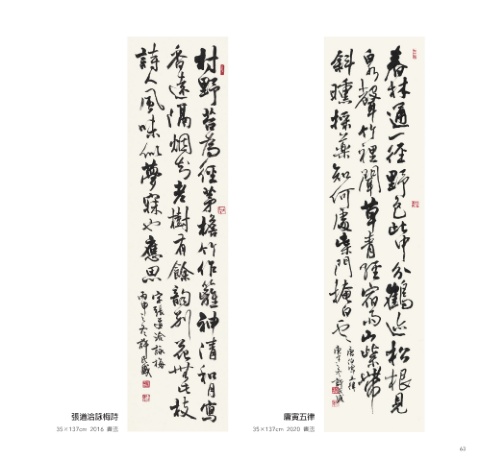 村野苔為徑茅檐竹作籬神清和月寫
香遠隔烟知老樹有餘韻別花無此枝
詩人風味似夢寐也應思
宋張道洽詠梅
丙申之冬許
張道洽詠梅詩
35×137cm 2016 書法
春林通一徑野色此中分鶴迹松根見
泉聲竹裡聞草青經宿雨山紫帶
斜曛採藥知何處柴門掩白雲
唐寅五律
35×137cm 2020 書法
63